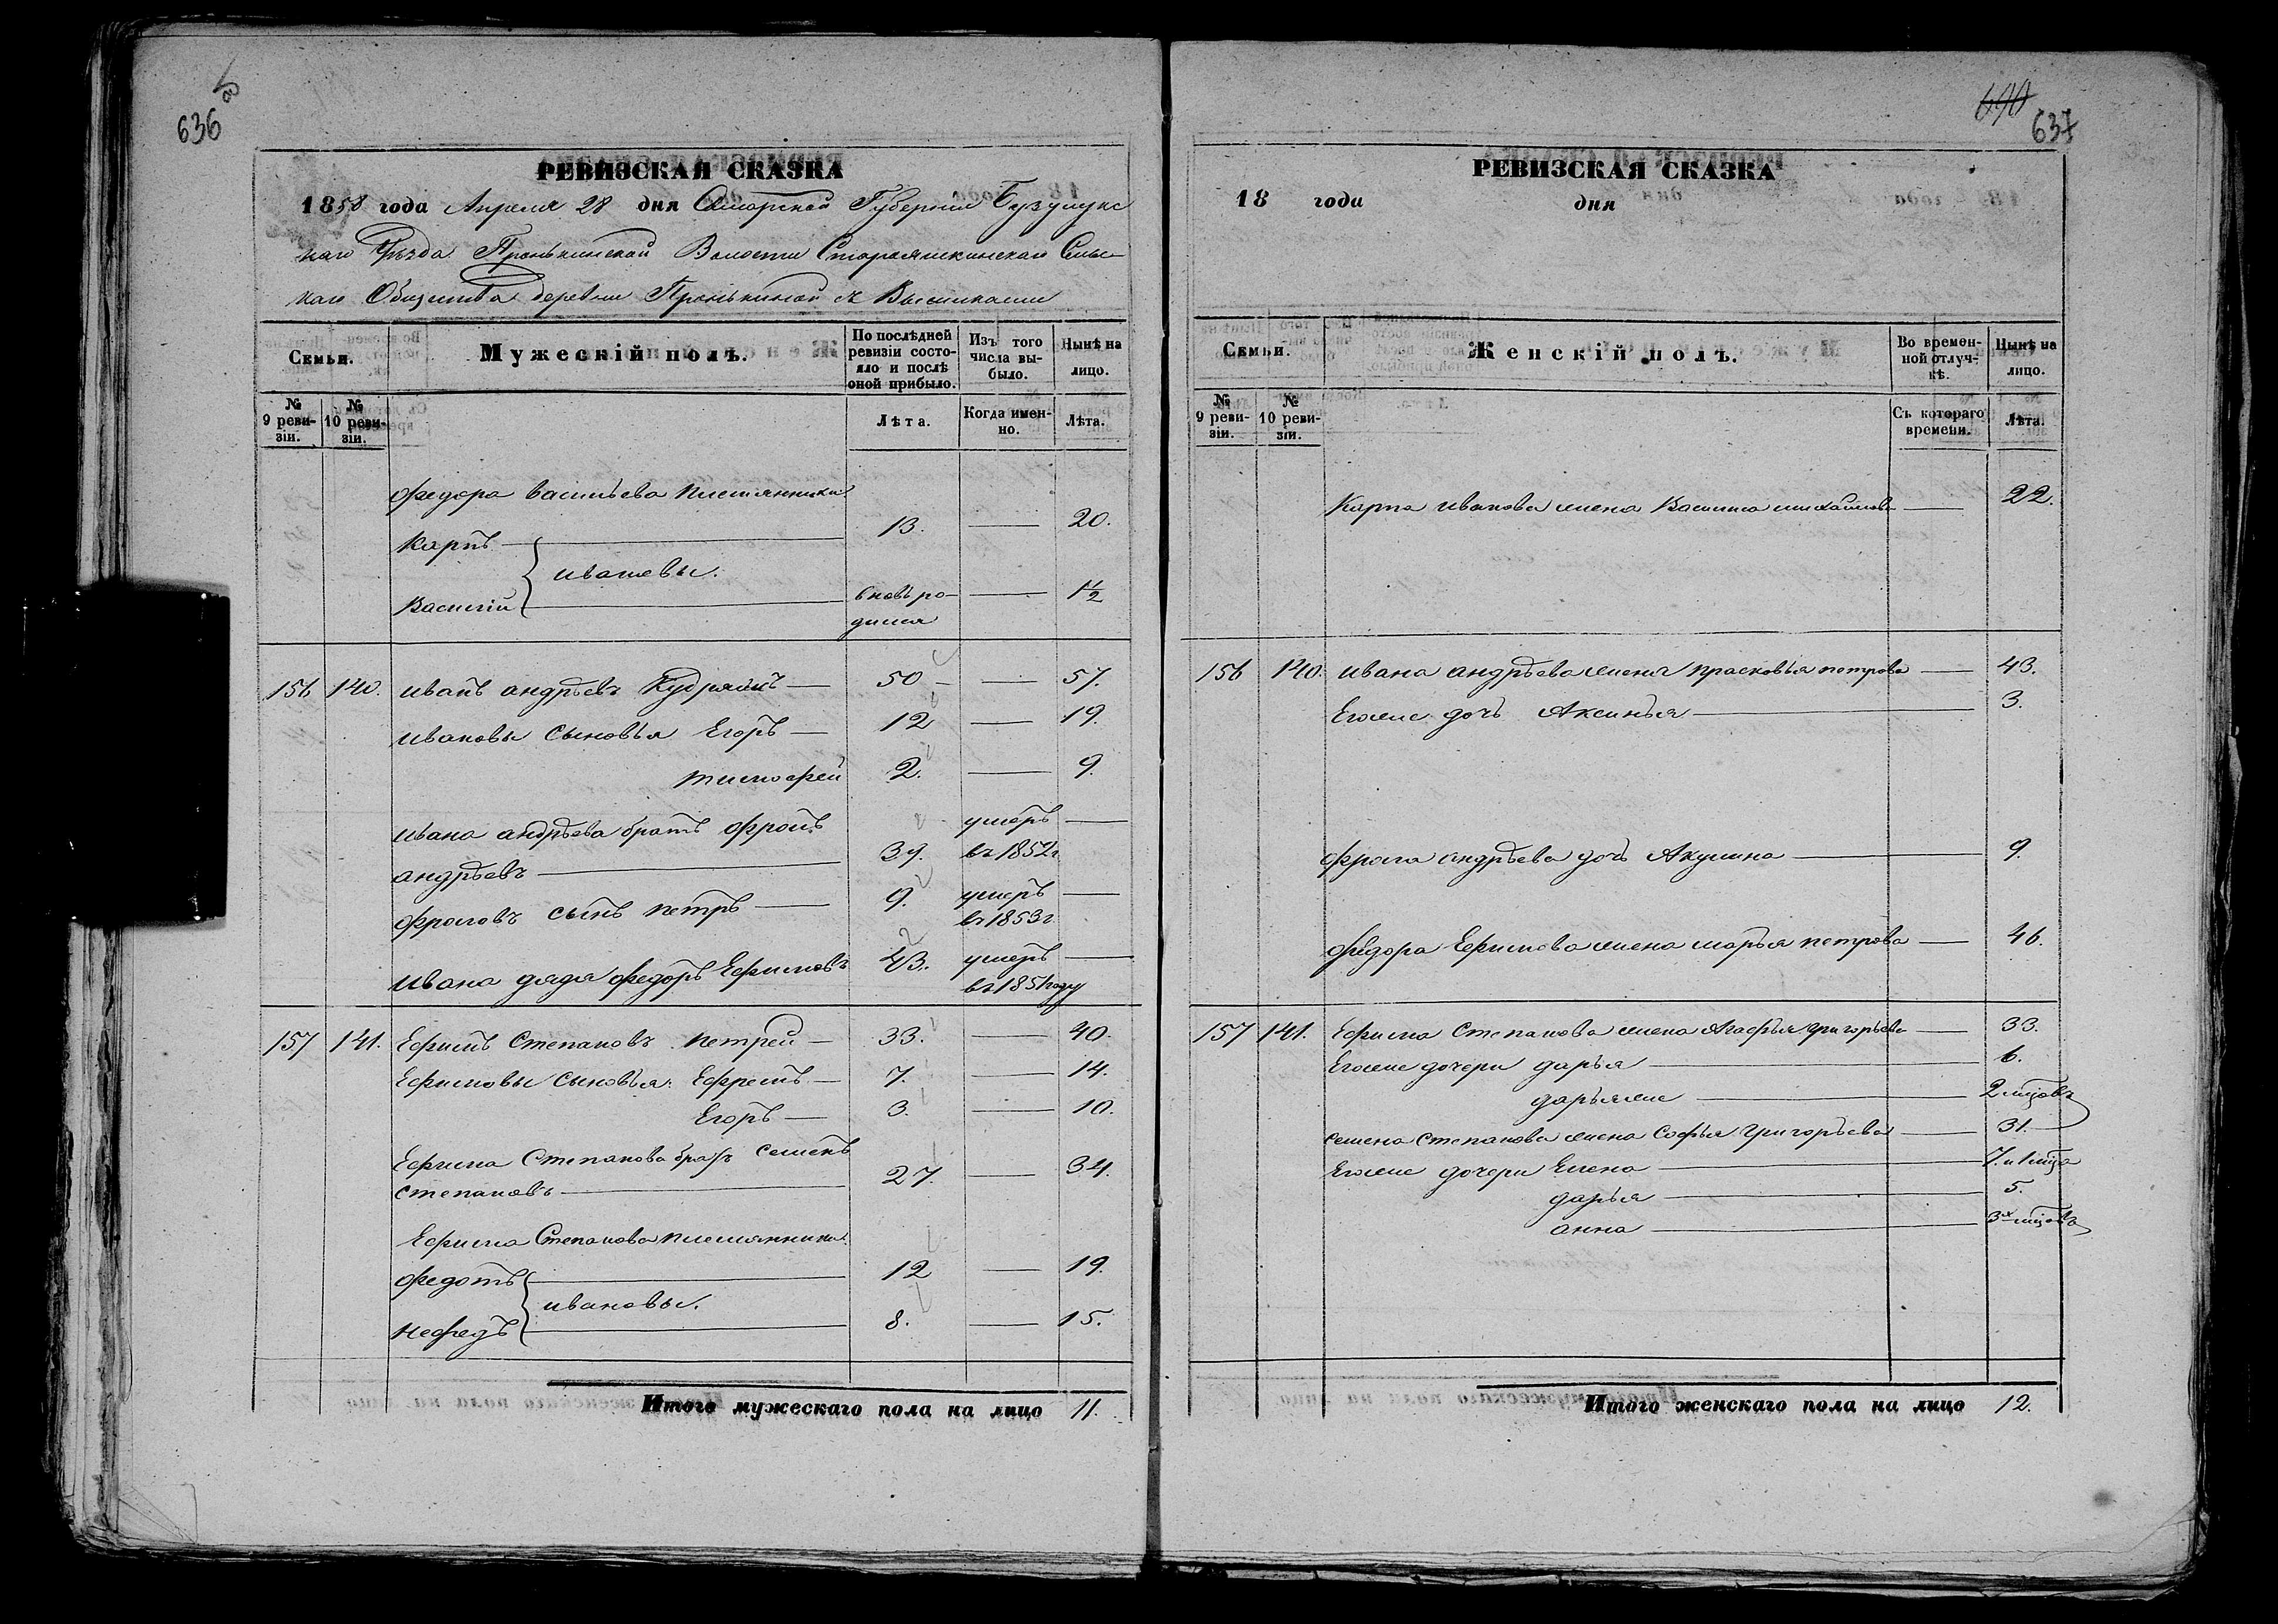 636
РЕВИЗСКАЯ СКАЗКА
1858 года Апреля 28 дня Самарской Губернии Бузулукс
каго Уѣзда Пронькинской Волости Старояшкинскаго Сельс-
каго Общества деревни Пронькиной
Семьи.
Мужескій полъ.
По послѣдней ревизіи состояло и послѣ оной прибыло.
Изъ того числа выбыло.
Нынѣ на лицо.
№ 9 ревизіи.
№ 10 ревизіи.
Лѣта.
Когда именно.
Лѣта.
Федора Васильева племянники
Карпъ 13. 20.
Ивановы.
Василій вновь ро- 1½
дился
156 140. Иванъ Андрѣевъ 50 57.
Ивановы сыновья Егоръ 12 19.
Тимофей 2. 9.
Ивана Андрѣева братъ Фролъ умеръ
Андрѣевъ въ 1852г
Фроловъ сынъ Петръ 9. умеръ
въ 1853г
Ивана дядя Федоръ Ефимовъ 43. умеръ
въ 1851 году
157 141. Ефимъ Степановъ 33. 40.
Ефимовы сыновья: Ефремъ 7. 14.
Егоръ 3. 10.
Ефима Степанова братъ Семенъ
Степановъ 27. 34
Ефима Степанова племянники
Федотъ 12 19.
Ивановы.
Нефедъ 8. 15.
Итого мужескаго пола на лицо 11.
690
637
РЕВИЗСКАЯ СКАЗКА
18 года дня
Семьи.
Женскій полъ.
Во временной отлучкѣ.
Нынѣ на лицо.
№ 9 ревизіи.
№ 10 ревизіи.
Съ котораго времени.
Лѣта.
Карпа Иванова жена Михайлова 22.
156 140. Ивана Андрѣева жена Прасковья Петрова 43.
Егоже дочь Аксинья 3.
Фрола Андрѣева дочь Акулина 9.
Федора Ефимова жена Марья Петрова 46.
157 141. Ефима Степанова жена Агафья Григорьева 33.
Егоже дочери Дарья 6.
Дарьяже 2 мцовъ
Семена Степанова жена Софья Григорьева 31.
Егоже дочери Елена 7. и 1 мца
Дарья 5.
Анна 3х мцовъ
Итого женскаго пола на лицо 12.